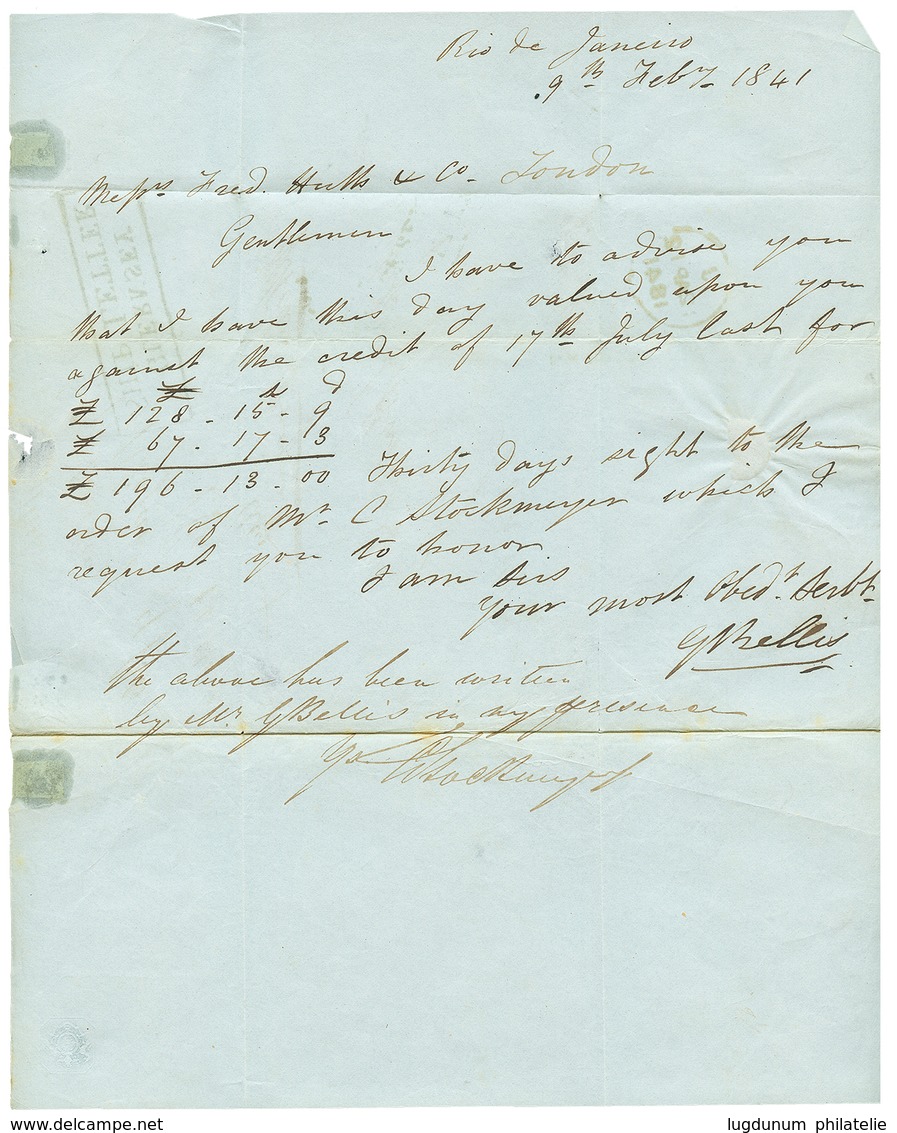 Rio de Janeiro
9th Feby 1841
Messrs Fred. Huth & Co. London
Gentlemen
I have to advise you
that I have this day valued upon you
against the credit of 17th July last for
£ s d
£ 128 - 15 - 9
£ 67 - 17 - 3
£ 196 - 13 - 00 Thirty days sight to the
order of Mr C Stockmeyer which I
request you to honor
I am Sirs
your most Obedt Servt
G Bellis
the above has been written
by Mr G Bellis in my presence
C Stockmeyer
SHIP LETTER
1841
www.delcampe.net
lugdunum philatelie